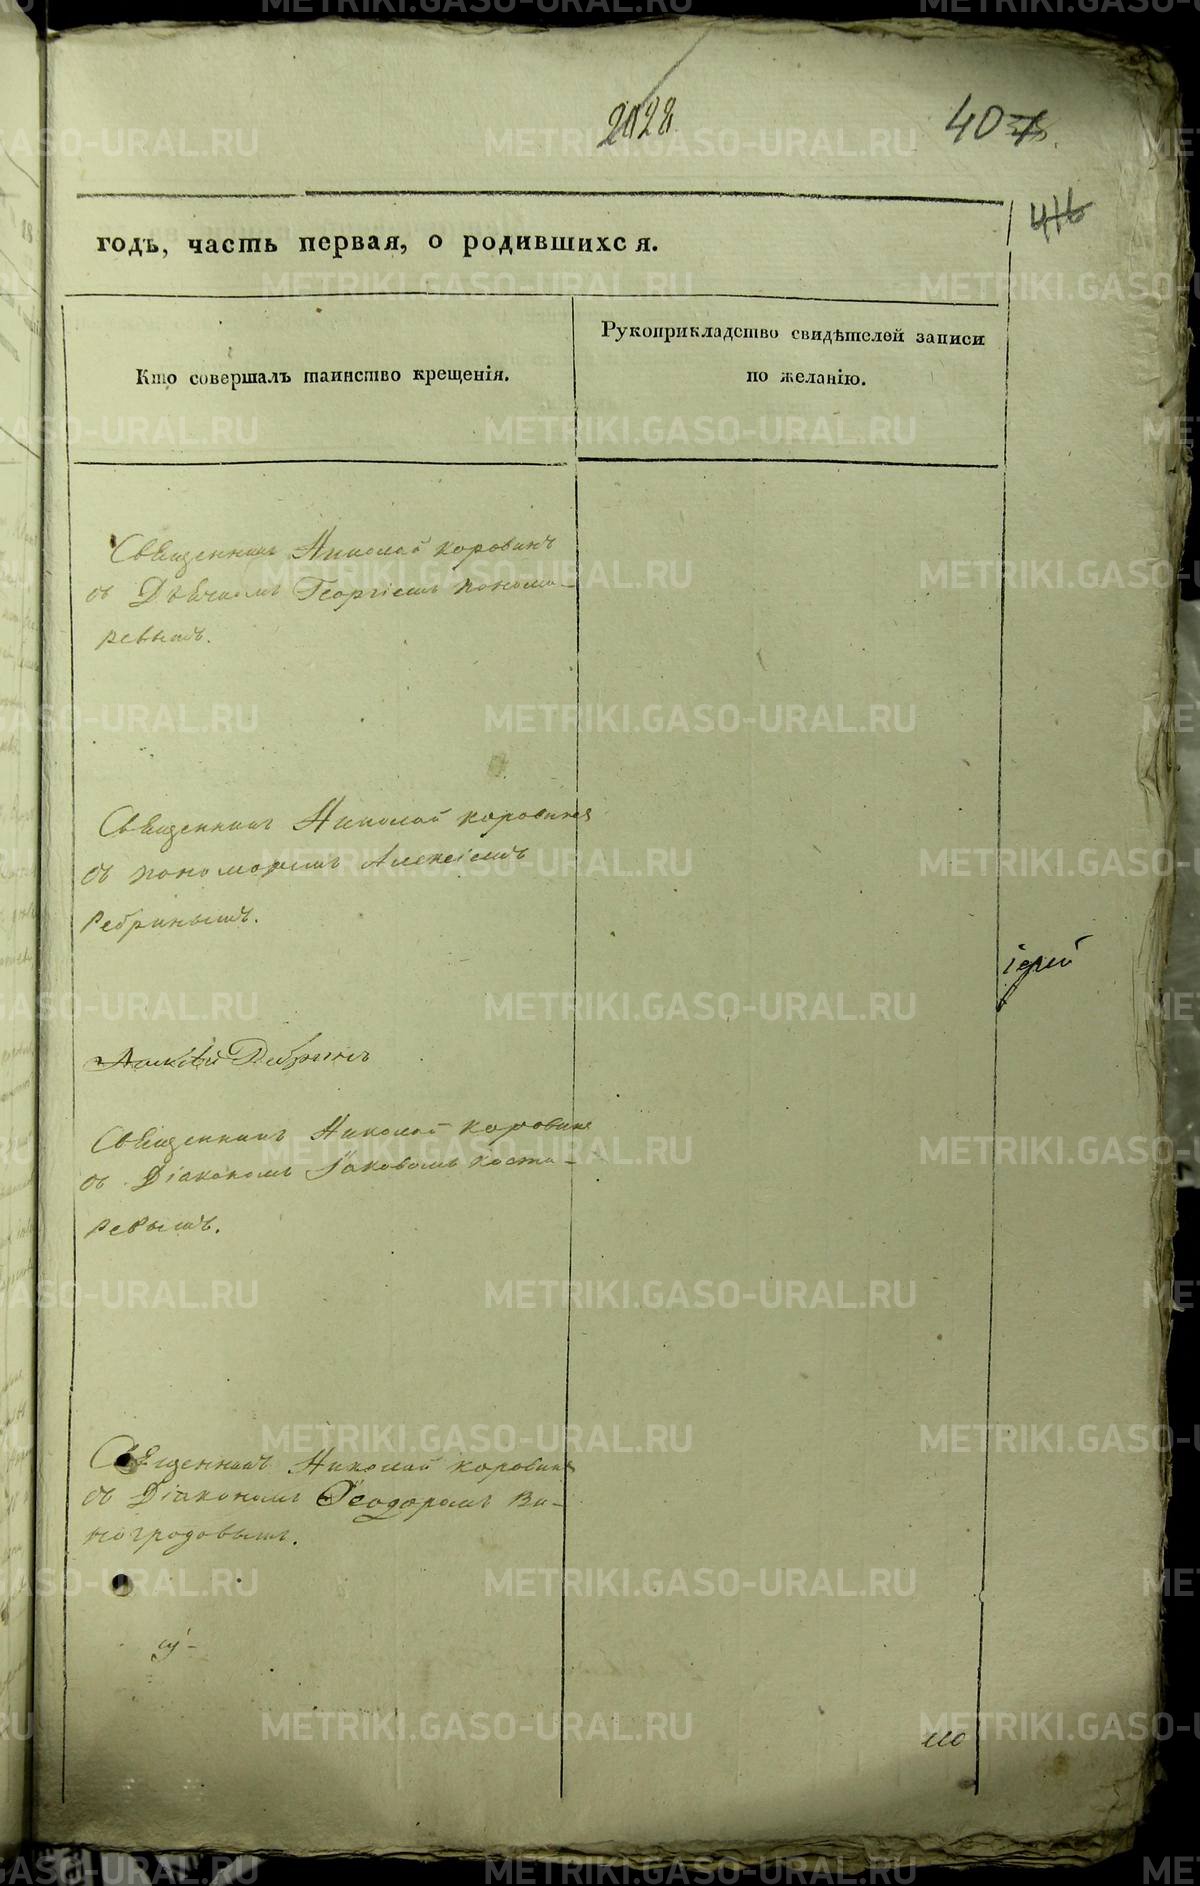 2028
40
416
годъ, часть первая, о родившихся.
Кто совершалъ таинство крещенія.
Рукоприкладство свидѣтелей записи
по желанію.
Священникъ Николай Коровинъ
съ Дьячкомъ Георгіемъ Понома-
ревымъ.
Священникъ Николай Коровинъ
съ пономоремъ Алексіемъ
Ребринымъ.
іерей
Священникъ Николай Коровинъ
съ Діакономъ Іаковомъ Коста-
ревымъ.
Священникъ Николай Коровинъ
съ Діакономъ Ѳеодоромъ Ви-
ногродовымъ.
METRIKI.GASO-URAL.RU